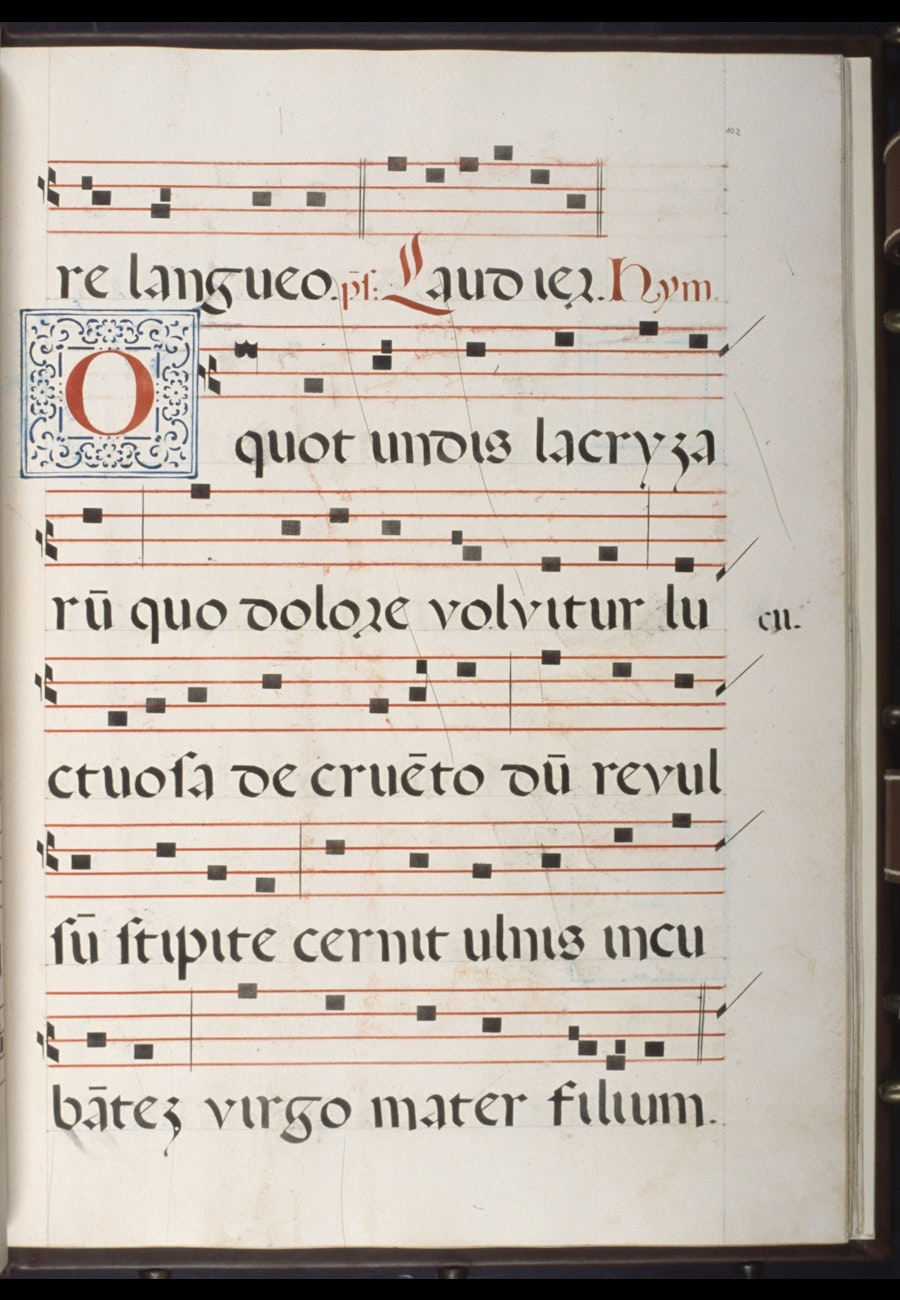 102
re langueo. ps: Laud ier. Hym.
O quot undis lacryꝫa
rū quo dolore volvitur lu
cu.
ctuoſa de cruēto dū revul
ſū ſtipite cernit ulnis incu
bāteꝫ virgo mater filium.